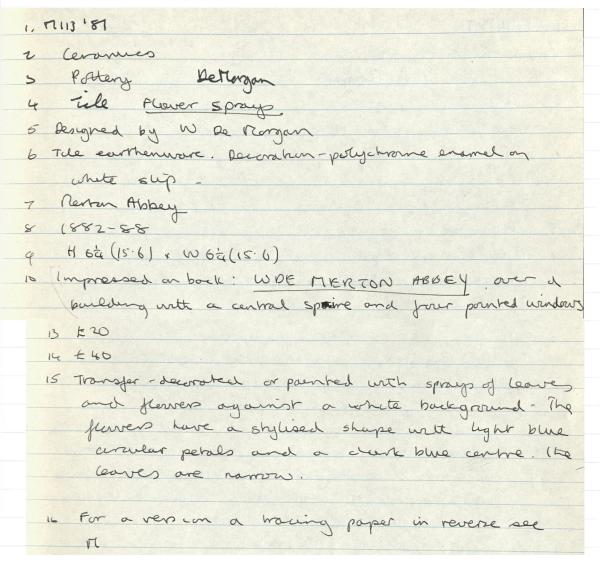 1. M113 '87
2 Ceramics
3 Pottery DeMorgan
4 Tile Flower Sprays
5 Designed by W De Morgan
6 Tile earthenware. Decoration - polychrome enamel on
white slip -
7 Merton Abbey
8 1882-88
9 H 6¼ (15.6) x W 6¼ (15.6)
10 Impressed on back: W DE MERTON ABBEY over a
building with a central spire and four pointed windows
13 £20
14 £40
15 Transfer-decorated or painted with sprays of leaves
and flowers against a white background - The
flowers have a stylised shape with light blue
circular petals and a dark blue centre. The
leaves are narrow.
16 For a version on tracing paper in reverse see
M